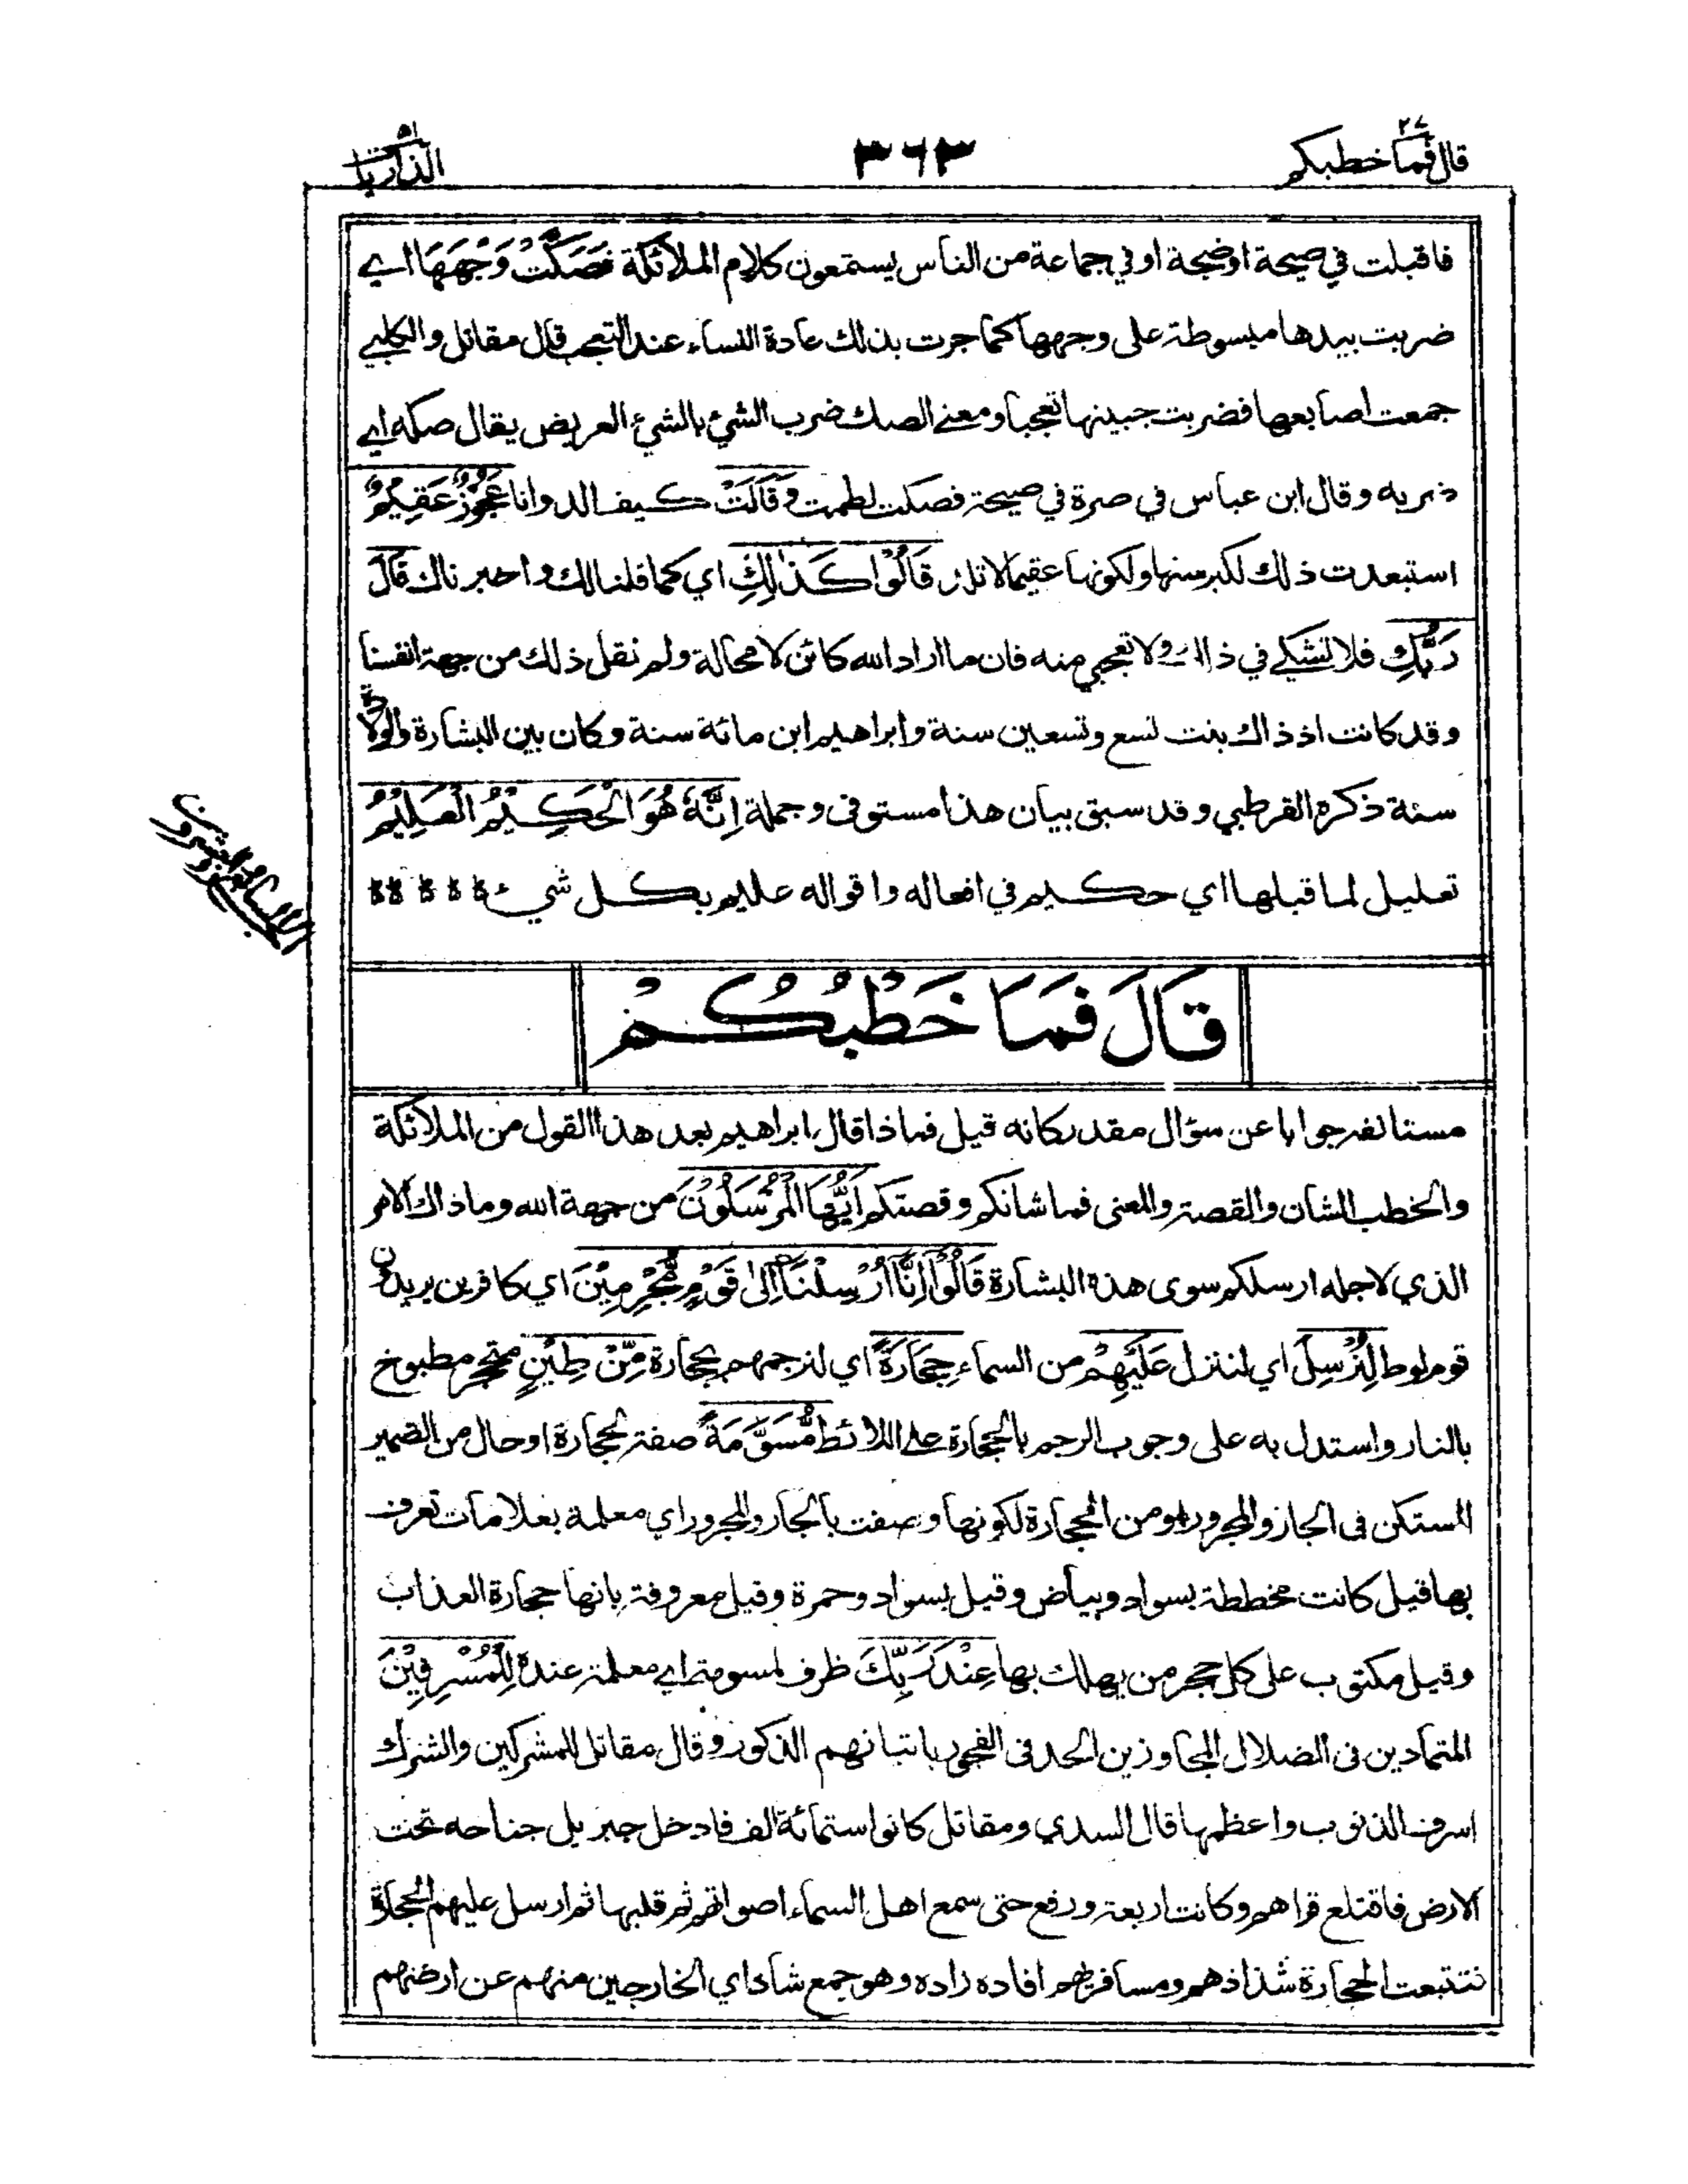 قال فما خطبكم ٢٧
٣٦٣
الذاريات ٥١
فاقبلت في صيحة اوضجة اوفي جماعة من الناس يستمعون كلام الملائكة فَصَكَّتْ وَجْهَهَا اي
ضربت بيدها مبسوطة على وجهها كما جرت بذلك عادة النساء عند التعجب قال مقاتل والكلبي
جمعت اصابعها فضربت جبينها تعجبا ومعنى الصك ضرب الشئ بالشئ العريض يقال صكه اي
ضربه وقال ابن عباس في صرة في صيحة فصكت لطمت وَقَالَتْ كيف الد وانا عَجُوْزٌ عَقِيْمٌ
استبعدت ذلك لكبر سنها ولكونها عقيما لا تلد قَالُوْا كَذٰلِكِ اي كما قلنا لك واخبرناك قَالَ
رَبُّكِ فلا تشكي في ذلك ولا تعجبي منه فان ما اراد الله كائن لا محالة ولم نقل ذلك من جهة انفسنا
وقد كانت اذ ذاك بنت تسع وتسعين سنة وابراهيم ابن مائة سنة وكان بين البشارة والولادة
سنة ذكره القرطبي وقد سبق بيان هذا مستوفى وجملة اِنَّهٗ هُوَ الْحَكِيْمُ الْعَلِيْمُ
تعليل لما قبلها اي حكيم في افعاله واقواله عليم بكل شيء
الجزء السابع والعشرون
قَالَ فَمَا خَطْبُكُمْ
مستانفة جوابا عن سؤال مقدر كانه قيل فماذا قال ابراهيم بعد هذا القول من الملائكة
والخطب الشان والقصة والمعنى فما شانكم وقصتكم اَيُّهَا الْمُرْسَلُوْنَ من جهة الله وما ذاك الامر
الذي لاجله ارسلكم سوى هذه البشارة قَالُوْٓا اِنَّآ اُرْسِلْنَآ اِلٰى قَوْمٍ مُّجْرِمِيْنَ اي كافرين يريدون
قوم لوط لِنُرْسِلَ اي لننزل عَلَيْهِمْ من السماء حِجَارَةً اي لنرجمهم بحجارة مِّنْ طِيْنٍ متحجر مطبوخ
بالنار واستدل به على وجوب الرجم بالحجارة على اللائط مُّسَوَّمَةً صفة لحجارة اوحال من الضمير
المستكن في الجار والمجرور اومن الحجارة لكونها وصفت بالجار والمجرور اي معلمة بعلامات تعرف
بها قيل كانت مخططة بسواد وبياض وقيل بسواد وحمرة وقيل معروفة بانها حجارة العذاب
وقيل مكتوب على كل حجر من يهلك بها عِنْدَ رَبِّكَ ظرف لمسومة اي معلمة عنده لِلْمُسْرِفِيْنَ
المتمادين في الضلال المجاوزين الحد في الفجور باتيانهم الذكور وقال مقاتل للمشركين والشرك
اسرف الذنوب واعظمها قال السدي ومقاتل كانوا ستمائة الف فادخل جبريل جناحه تحت
الارض فاقتلع قراهم وكانت اربعة ورفع حتى سمع اهل السماء اصواتهم ثم قلبها ثم ارسل عليهم الحجارة
فتتبعت الحجارة شذاذهم ومسافريهم افاده زاده وهو جمع شاذ اي الخارجين منهم عن ارضهم